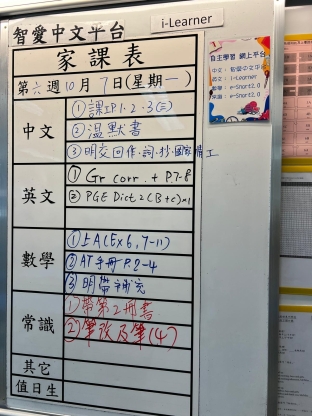 智愛中文平台
i-Learner
家課表
第六週10月7日(星期一)
中文
①課IP1.2.3(三)
②温默書
③明交回作.詞.抄.國家
英文
①Gr corr. + P.7-8
②PGE Dict 2(B+C)×1
數學
①上A(Ex 6, 7-11)
②AT手冊P.2-4
③明帶補充
常識
①帶第2冊書
②筆改及筆(4)
其它
值日生
自主學習 網上平台
中文: 智愛中文平台
英文: i-Learner
數學: e-Smart2.0
常識: e-Smart2.0